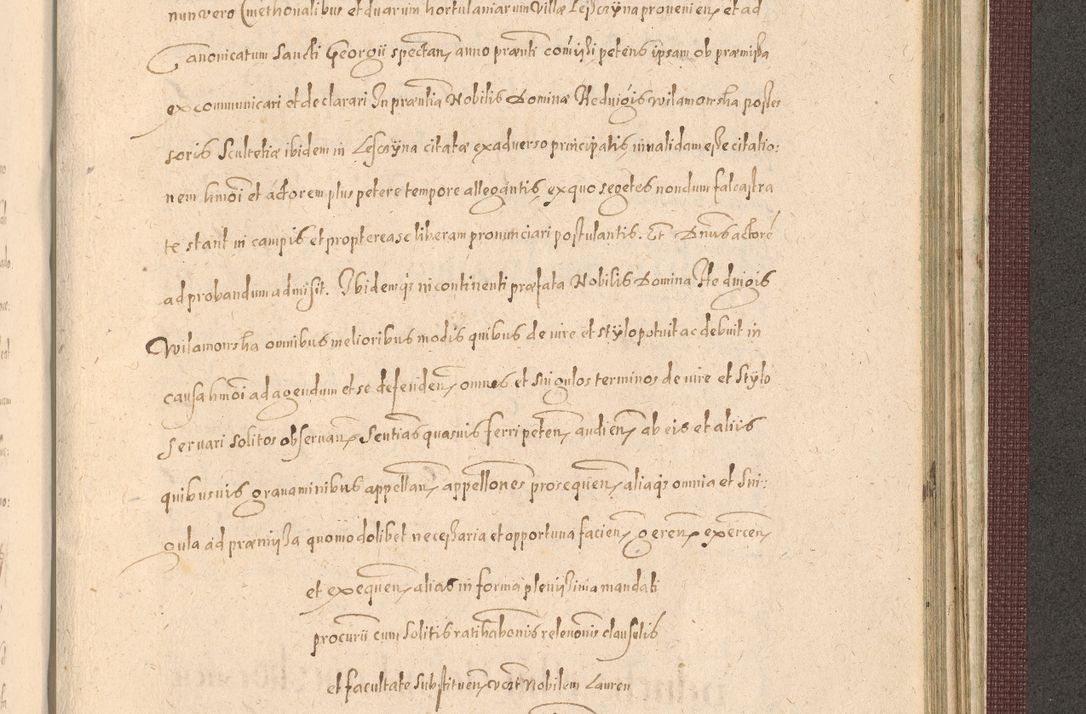 nun vero Cmethonalibus et duarum hortulaniarum Villæ Lesczÿna provenien, et ad
Canonicatum Sancti Georgii spectan, anno prænti comissi petens ipsam ob præmissa
excommunicari et declarari In præntia Nobilis Dominæ Heduigis Wilamowska posses
soris Scultetiæ ibidem in Lesczÿna citatæ ex adverso principalis, invalidam esse citatio:
nem hmoi et actorem plus petere tempore allegantis, ex quo segetes nondum falcastra
te stant in campis et propterea se liberam pronunciari postulantis. Et Dnus actore
ad probandum admisit. Ibidemqz incontinenti præfata Nobilis Domina Heduigis
Wilamowska omnibus melioribus modis quibus de iure et stÿlo potuit ac debuit in
causa hmoi ad agendum et se defenden, omnes et singulos terminos de iure et Stÿlo
servari solitos observan, Sentias quasvis ferri peten, audien, ab eis et aliis
quibusvis gravaminibus appellan, appellones prosequen, aliaqz omnia et Sin:
gula ad præmissa quomodolibet necessaria et opportuna facien, geren, exercen,
et exequen, alias in forma plenissima mandati
procurii cum solitis ratihabonis relevonis clausulis
et facultate substituen, vocat Nobilem Lauren